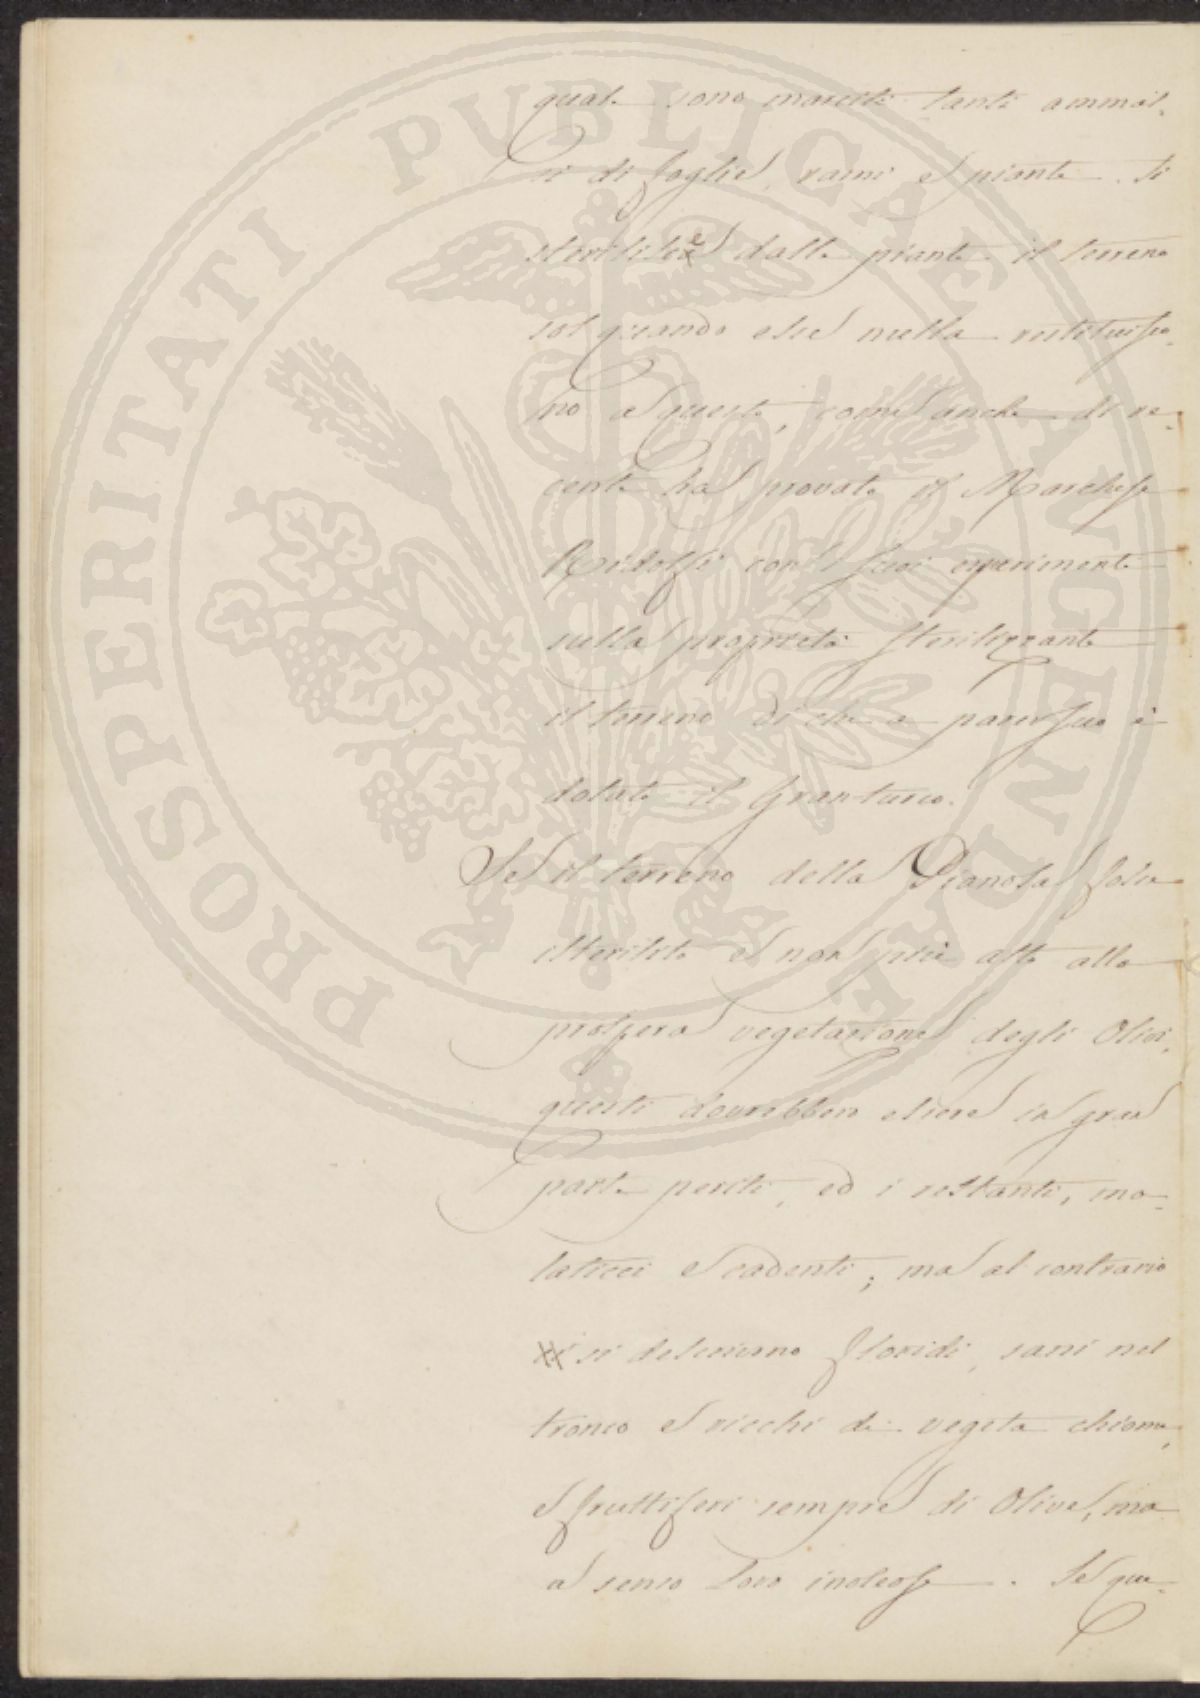 PROSPERITATI PUBLICAE AUGENDAE
quale sono marciti tanti ammas-
si di foglie, rami e piante. Si
sterilisce dalle piante il terreno
sol quando esse nulla restituisco-
no a questo, come anche di re-
cente ha provato il Marchese
Ridolfi con i suoi esperimenti
sulla proprietà sterilizzante
il terreno di che a parer suo è
dotato il Granturco.
Se il terreno della Pianosa fosse
isterilito e non più atto alla
prospera vegetazione degli Olivi,
questi dovrebbero essere in gran
parte periti, ed i restanti, ma-
laticci e cadenti; ma al contrario
si floridi, sani nel
tronco e ricchi di vegeta chioma,
e fruttiferi sempre di Olive, ma
a senso loro inoleose. Se que-